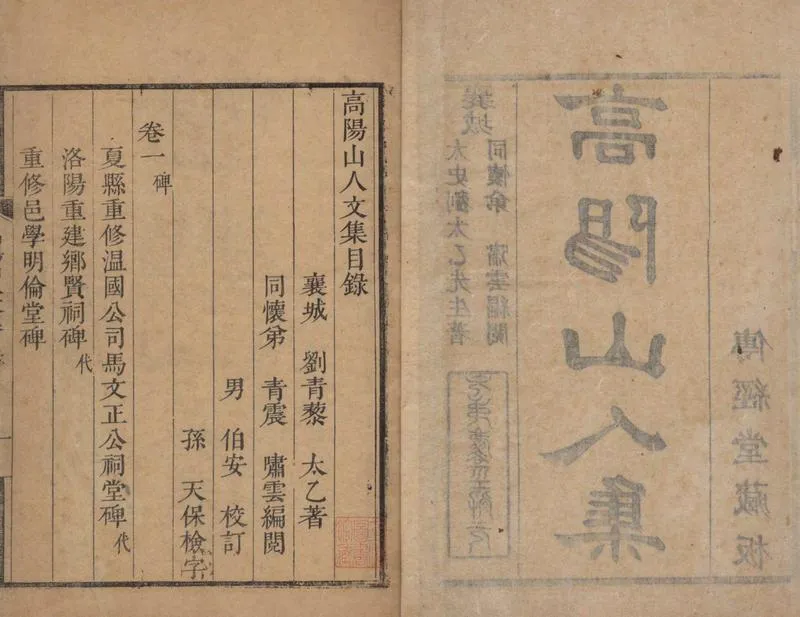 襄城
太史劉太乙先生著
同懷弟 嘯雲編閱
高陽山人集
傳經堂藏板
高陽山人文集目錄
襄城 劉青藜 太乙著
同懷弟 青震 嘯雲編閱
男 伯安 校訂
孫 天保檢字
卷一 碑
夏縣重修溫國公司馬文正公祠堂碑 代
洛陽重建鄉賢祠碑 代
重修邑學明倫堂碑